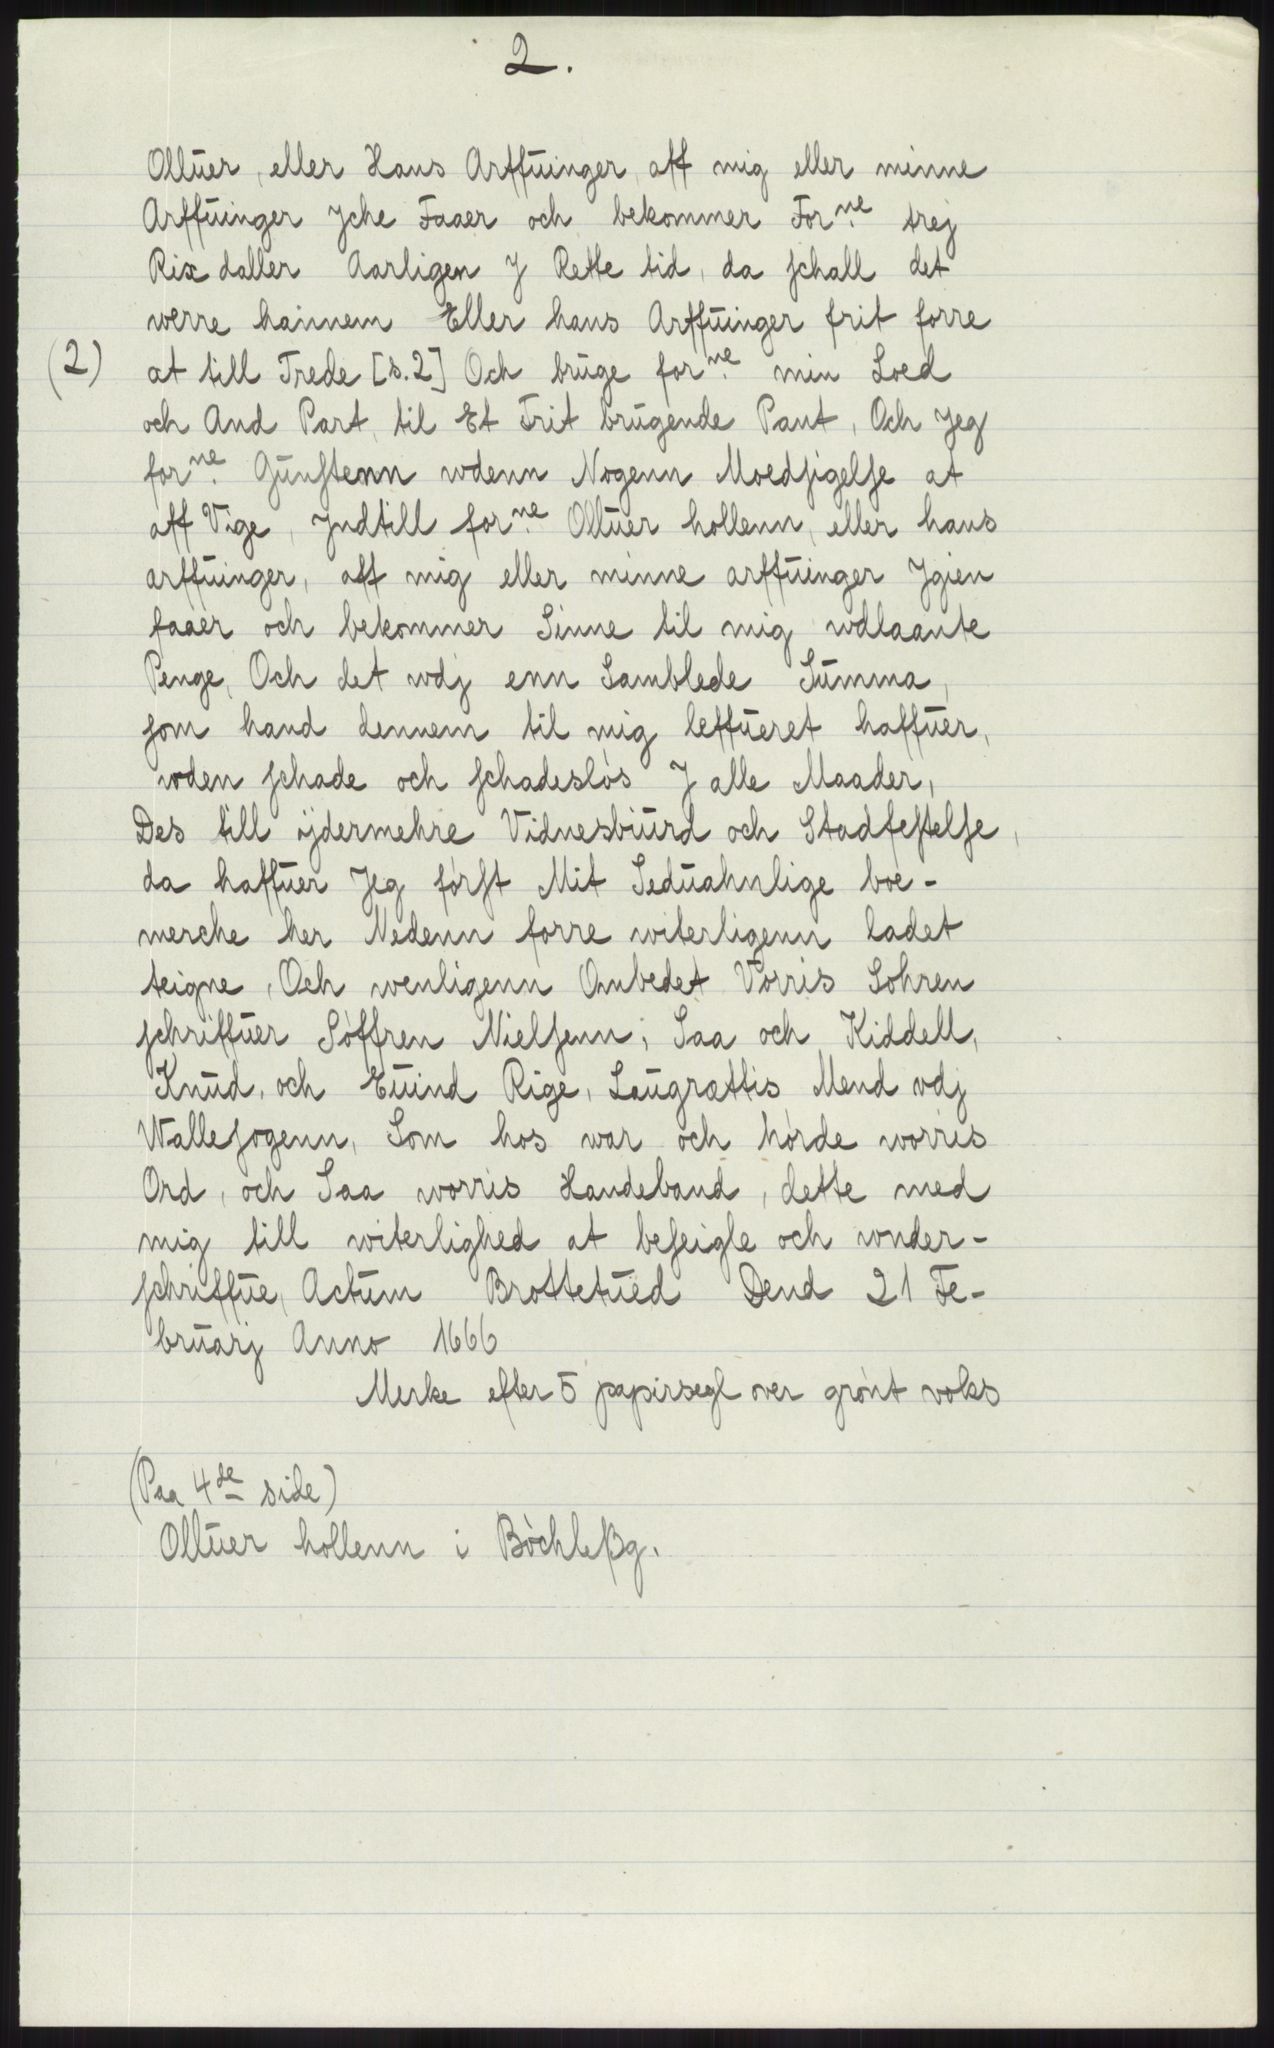 2.
Olluer, eller Hans Arffuinger, aff mig eller minne
Arffuinger Jche Faaer och bekommer Forne. trej
Rix daller Aarligen J Rette tid, da schall det
werre hannem Eller hans Arffuinger frit forre
(2) at till Trede [s.2] Och bruge forne. min Loed
och And Part, til Et Frit brugende Pant, Och Jeg
forne. Gunstenn wdenn Nogenn Moedsigelse at
aff Vige, Jndtill forne. Olluer hollenn, eller hans
arffuinger, aff mig eller minne arffuinger Jgien
faaer och bekommer Sinne til mig wdlaante
Penge, Och det wdj enn Samblede Summa,
som hand dennem til mig leffueret haffuer,
wden schade och schadesløs J alle Maader,
Des till ÿdermehre Vidnesbiurd och Stadfestelse,
da haffuer Jeg først Mit Seduahnlige boe-
merche her Nedenn forre witerligenn ladet
teigne, Och wenligenn Ombedet Vorris Sohren
schriffuer Søffren Nielsenn, Saa och Kiddell,
Knud, och Euind Rige, Laugrættis Mend wdj
Wallesogenn, Som hos war och hørde worris
Ord, och Saa worris Handeband, dette med
mig till witerlighed at beseigle och wnder-
schriffue, Actum Brottetued Dend 21 Fe-
bruarj Anno 1666
Merke efter 5 papirsegl over grønt voks
(Paa 4de side)
Olluer hollenn i Bøchleßg.